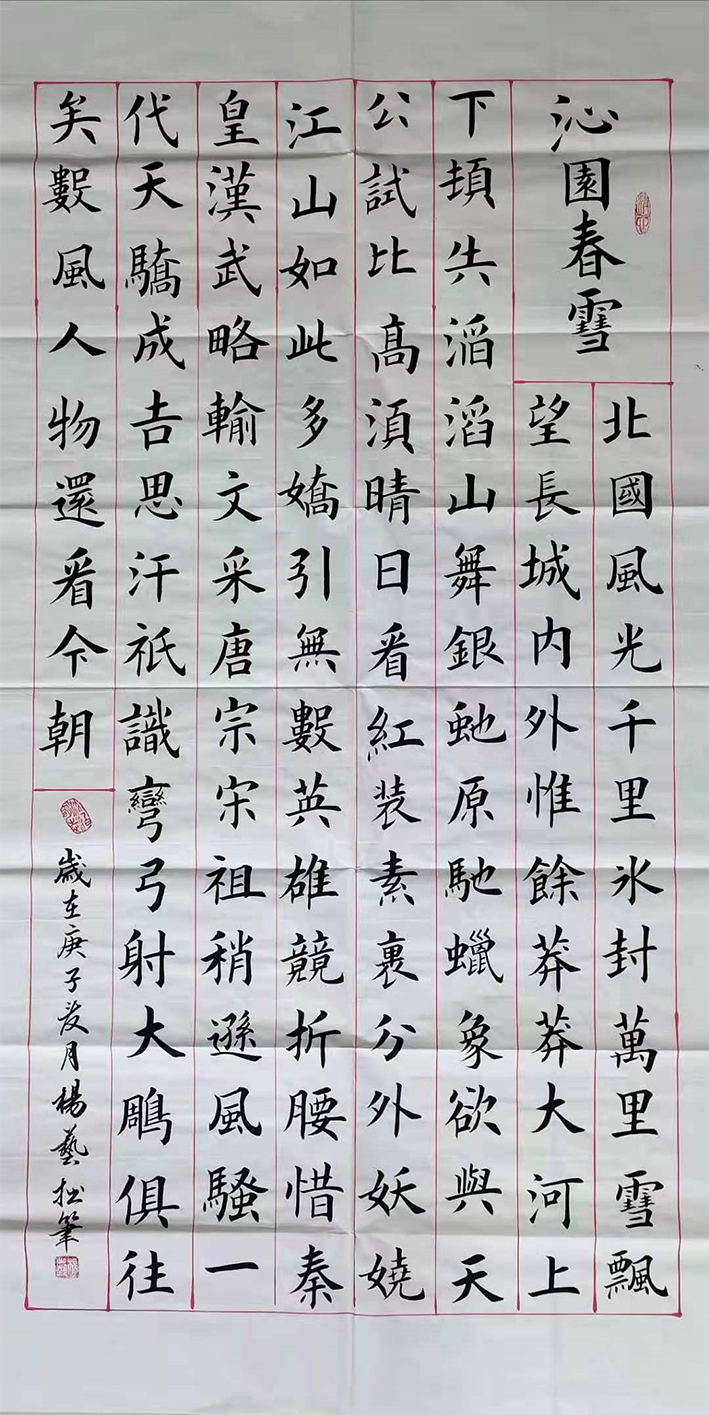 沁園春雪
北國風光千里氷封萬里雪飄
望長城内外惟餘莽莽大河上
下頓失滔滔山舞銀虵原馳蠟象欲與天
公試比高須晴日看紅装素裹分外妖嬈
江山如此多嬌引無數英雄競折腰惜秦
皇漢武略輸文采唐宗宋祖稍遜風騷一
代天驕成吉思汗祇識彎弓射大鵰俱往
矣數風人物還看今朝
歲在庚子月楊藝拙筆